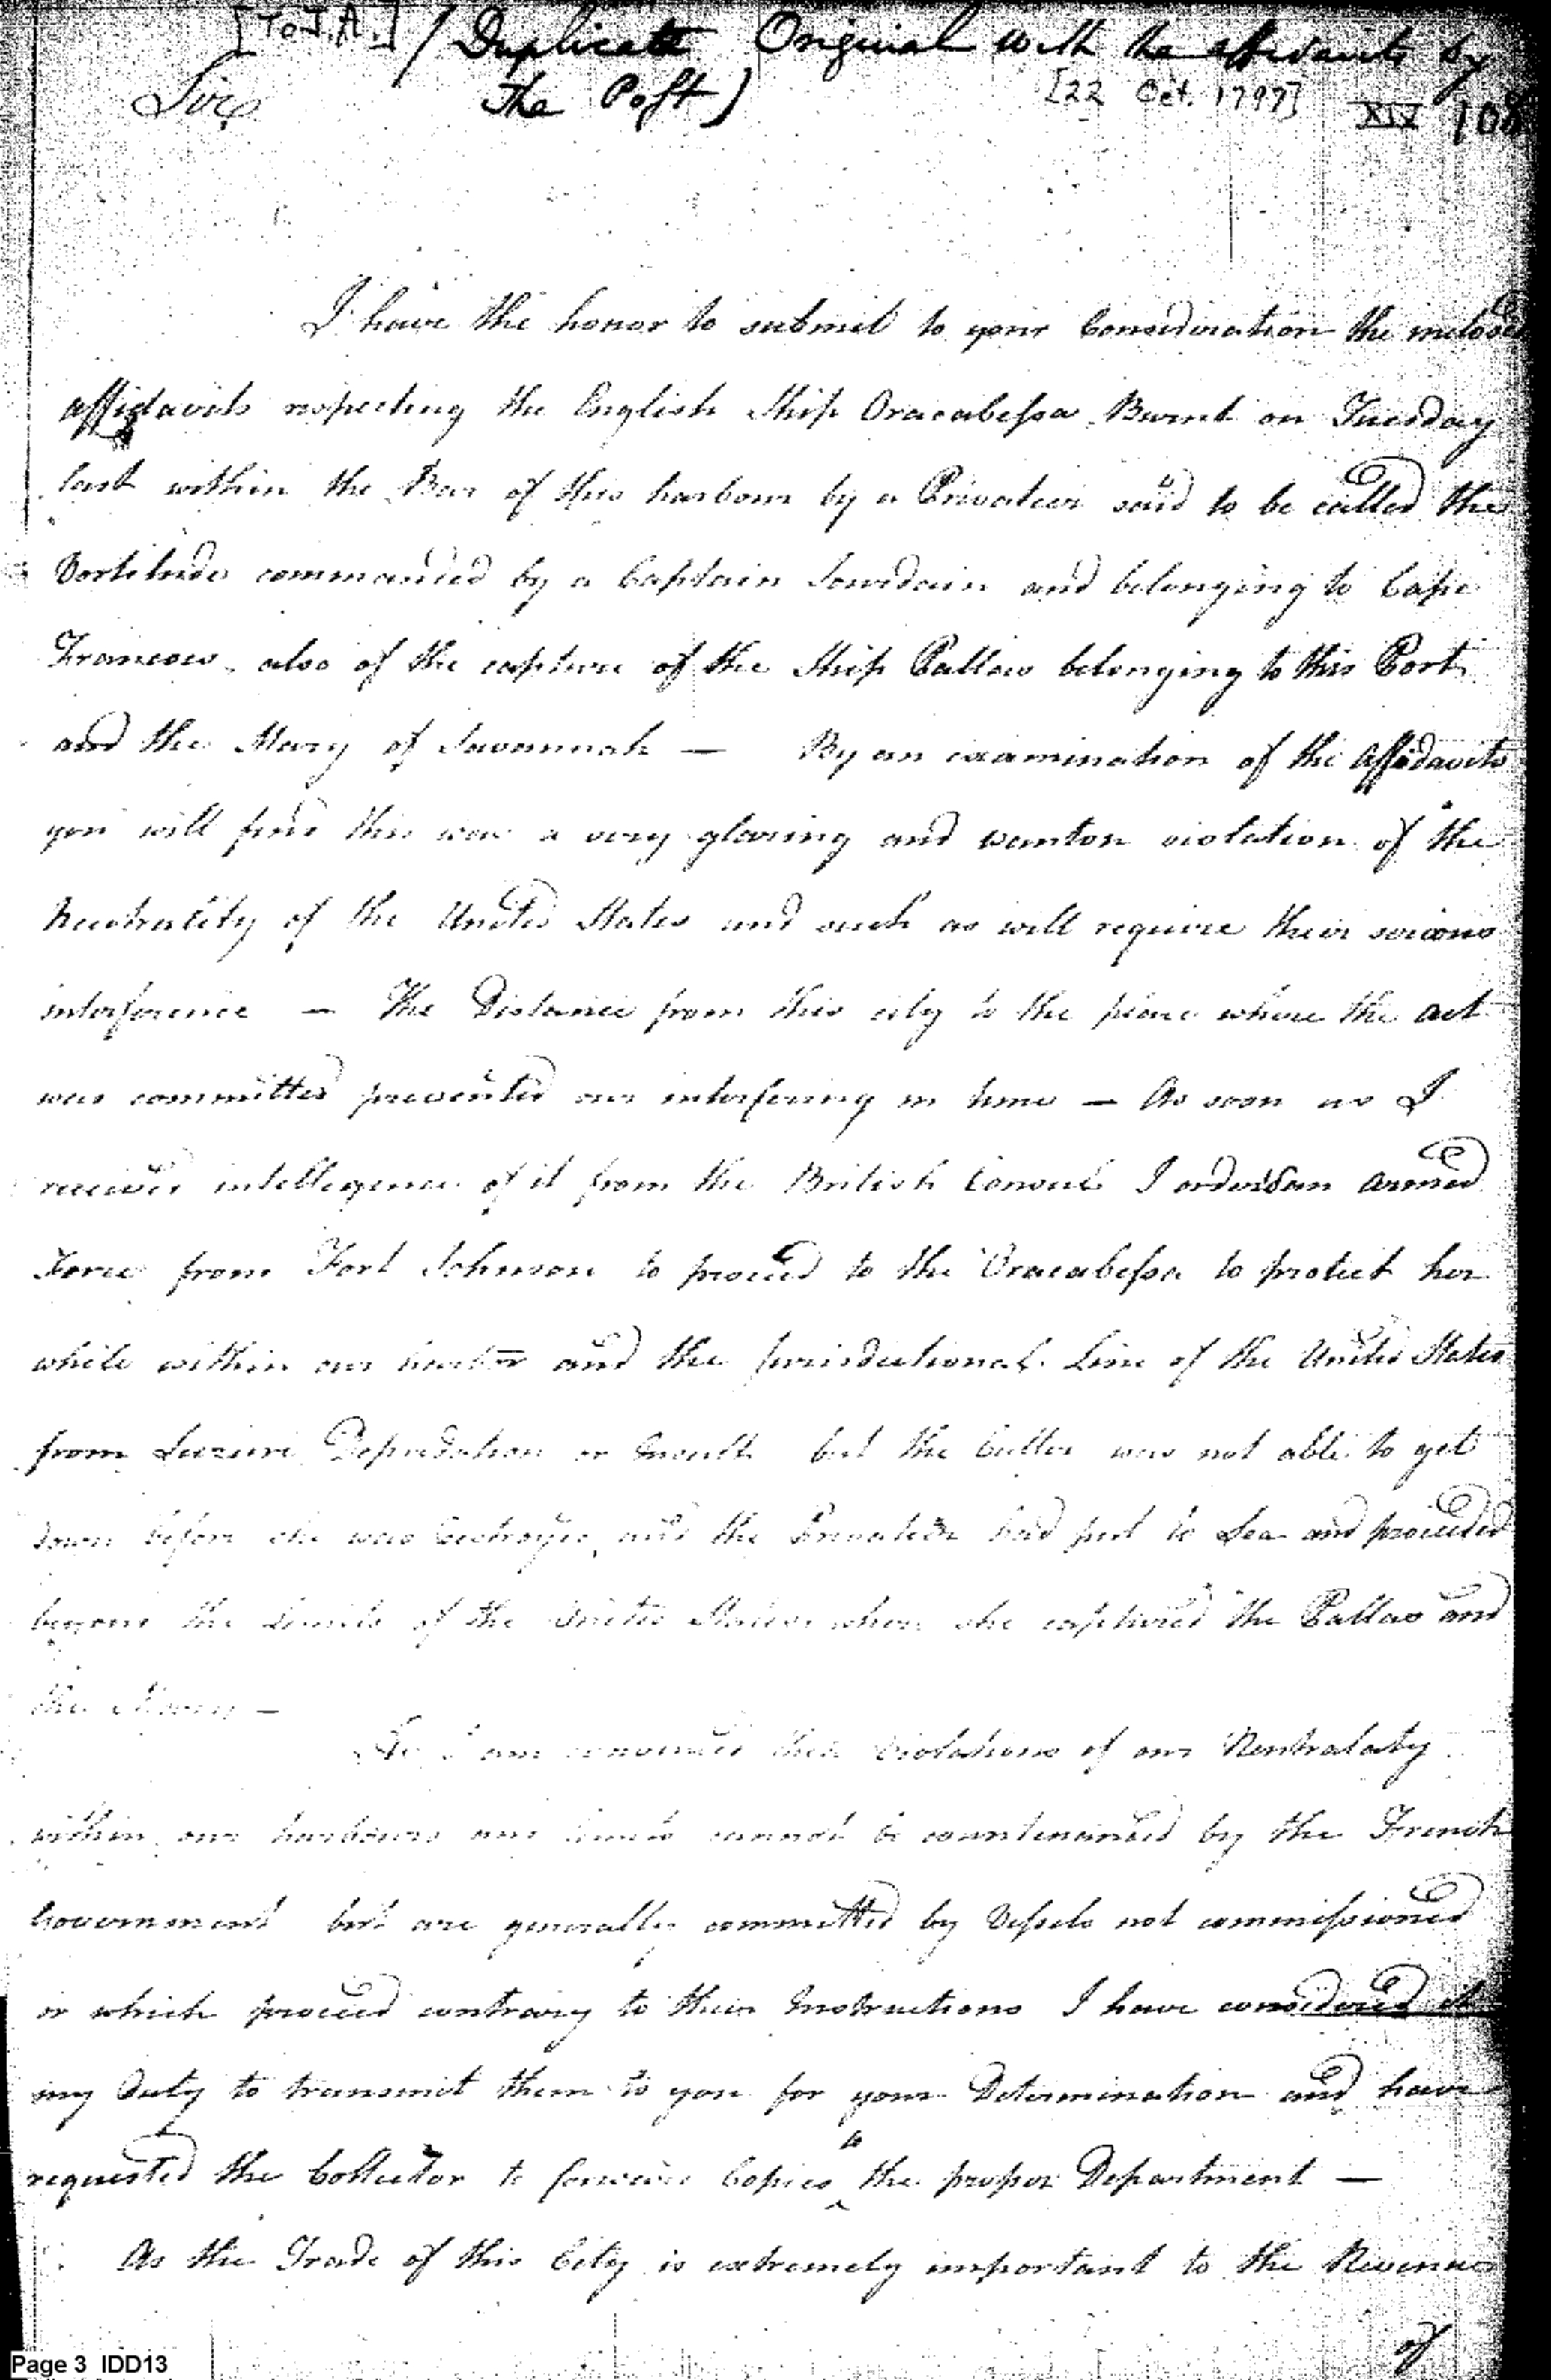 [To J.A.] (Duplicate Original with the affidavits by
Sir, The Post)
[22 Oct. 1797] XIV 108
I have the honor to submit to your Consideration the inclosed
affidavits respecting the English Ship Oracabessa Burnt on Tuesday
last within the Bar of this harbour by a Privateer said to be called the
Vertitude commanded by a Captain Jourdain and belonging to Cape
Francois also of the capture of the Ship Pallas belonging to this Port
and the Mary of Savannah — By an examination of the Affidavits
you will find this was a very glaring and wanton violation of the
Neutrality of the United States and such as will require their serious
interference — The Distance from this city to the place where the act
was committed prevented our interfering in time — As soon as I
received intelligence of it from the British Consul I ordered an armed
Force from Fort Johnson to proceed to the Oracabessa to protect her
while within our harbor and the jurisdictional Line of the United States
from Seizure Depredation or Insult but the Cutter was not able to get
down before she was destroyed, and the Privateer had put to Sea and proceeded
beyond the Limits of the United States where she captured the Pallas and
the Mary —
As I am convinced these Violations of our Neutralaty
within our harbours and limits cannot be countenanced by the French
Government but are generally committed by Vessels not commissioned
or which proceed contrary to their Instructions I have considered it
my Duty to transmit them to you for your Determination and have
requested the Collector to forward Copies to the proper Department —
As the Trade of this City is extremely important to the Revenue
of
Page 3 IDD13